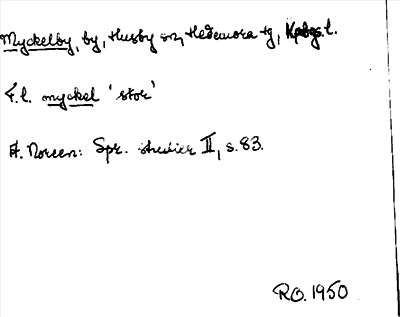 Myckelby, by, Husby sn, Hedemora tg, Kpbgs. l.
F.l. myckel 'stor'
A. Noreen: Spr. studier II, s. 83.
RO. 1950